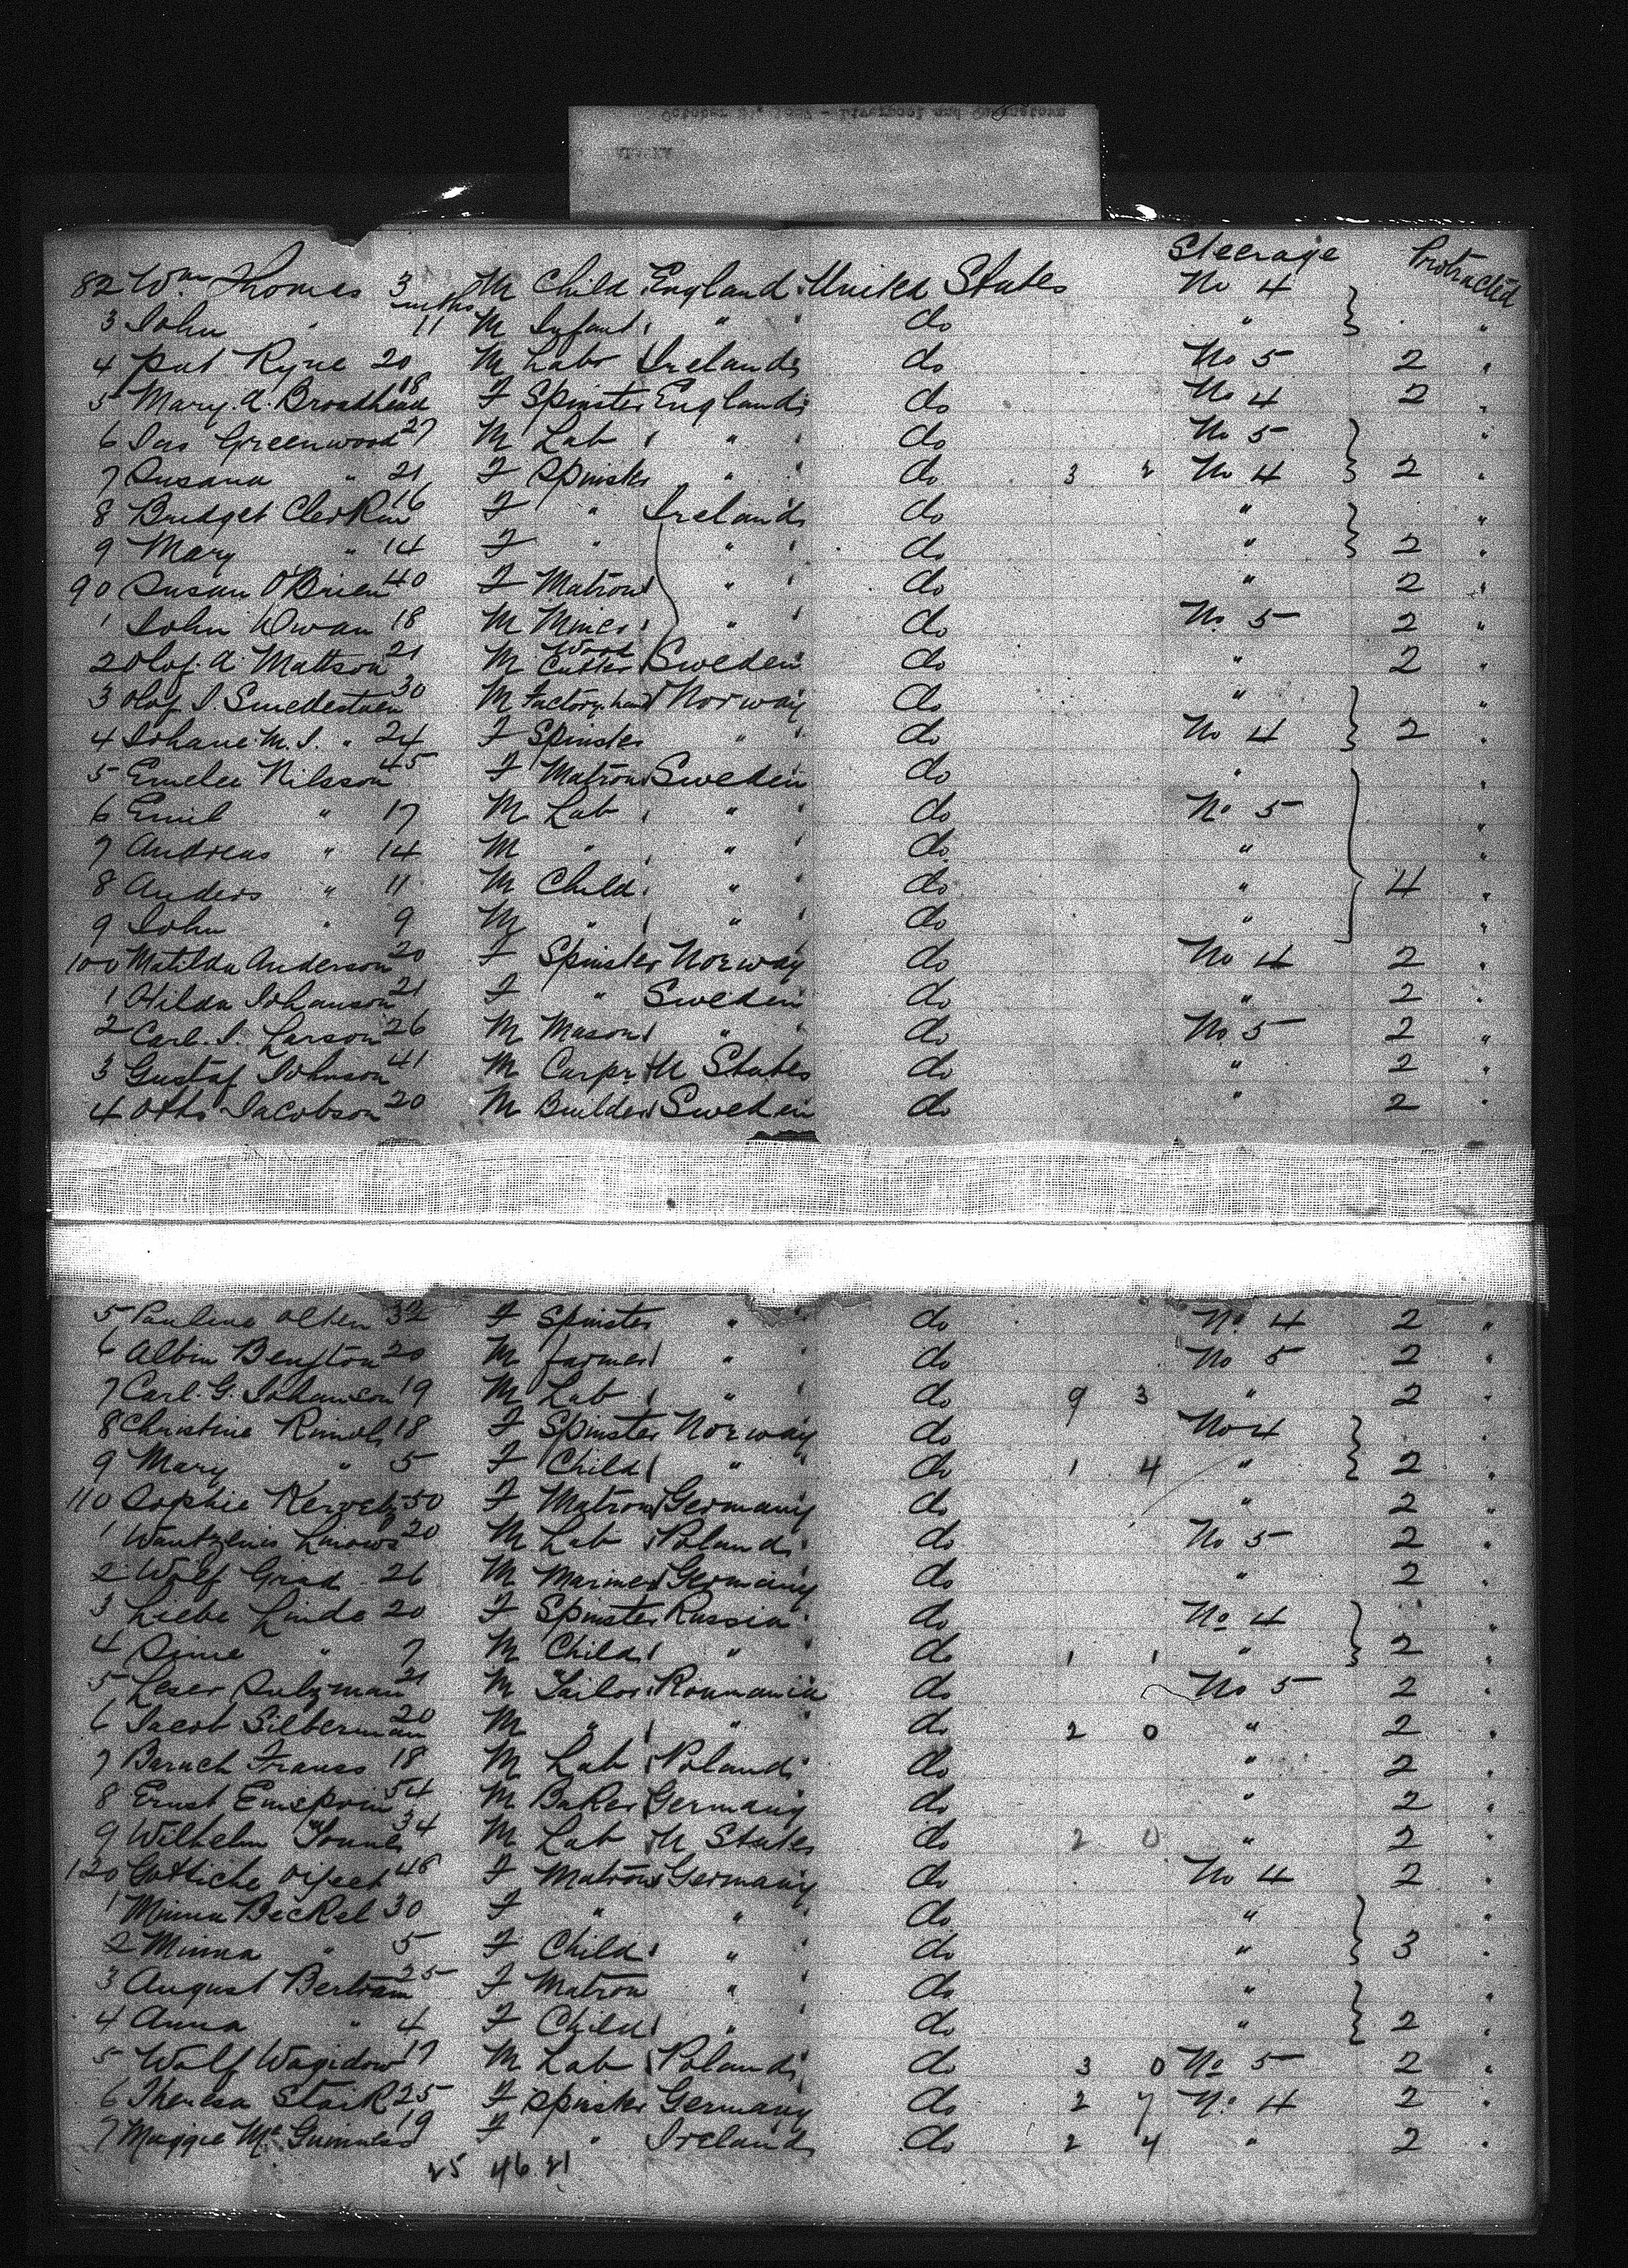 Steerage Protracted
82 Wm Thomas 3 M Child England United States No 4
mths
3 John " 11 M Infant " do "
4 Pat Ryne 20 M Labr Ireland do No 5 2 "
5 Mary. A. Broadhead 18 F Spinster England do No 4 2 "
6 Jas Greenwood 27 M Lab " do No 5 "
7 Susana " 21 F Spinster " do 3 2 No 4 2 "
8 Bridget 16 F " Ireland do " "
9 Mary " 14 F " " do " 2 "
90 Susan O'Brien 40 F Matron " do " 2 "
1 John Dwan 18 M Miner " do No 5 2 "
2 Olof. A. Mattson 21 M Wood Cutter Sweden do " 2 "
3 Olof J 30 M Factory hand Norway do " "
4 Johane M. J. " 24 F Spinster " do No 4 2 "
5 Emelee Nilsson 45 F Matron Sweden do " "
6 Emil " 17 M Lab " do No 5 "
7 Andreas " 14 M " " do " "
8 Anders " 11 M Child " do " 4 "
9 John " 9 M " " do " "
100 Matilda Anderson 20 F Spinster Norway do No 4 2 "
1 Hilda Johanson 21 F " Sweden do " 2 "
2 Carl. J. Larson 26 M Mason " do No 5 2 "
3 Gustaf Johnson 41 M Carpr U States do " 2 "
4 Otto Jacobson 20 M Builder Sweden do " 2 "
5 Pauline Olten 32 F Spinster " do No 4 2 "
6 Albin Bengton 20 M farmer " do No 5 2 "
7 Carl. G. Johanson 19 M Lab " do 9 3 " 2 "
8 Christine 18 F Spinster Norway do No 4
9 Mary " 5 F Child " do 1 4 " 2 "
110 Sophie 50 F Matron Germany do " 2 "
1 20 M Lab Poland do No 5 2 "
2 Wolf Grad 26 M Mariner Germany do " 2 "
3 Liebe Linde 20 F Spinster Russia do No 4 "
4 Sime " 7 M Child " do 1 1 " 2 "
5 Leser Sulzman 21 M Tailor Roumania do No 5 2 "
6 Jacob Silberman 20 M " " do 2 0 " 2 "
7 Baruch Frauss 18 M Lab Poland do " 2 "
8 Ernst 54 M Baker Germany do " 2 "
9 Wilhelm 34 M Lab U States do 2 0 " 2 "
120 46 F Matron Germany do No 4 2 "
1 Minna Beckel 30 F " " do " "
2 Minna " 5 F Child " do " 3 "
3 August Bertram 25 F Matron " do " "
4 Anna " 4 F Child " do " 2 "
5 Wolf Wagidow 17 M Lab Poland do 3 0 No 5 2 "
6 Theresa Stark 25 F Spinster Germany do 2 7 No 4 2 "
7 Maggie McGuinness 19 F " Ireland do 2 4 " 2 "
25 46 21